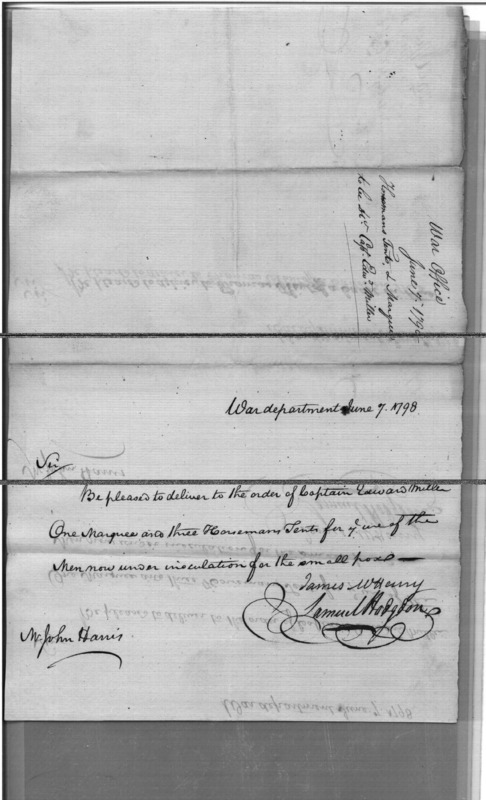 War Office
June 7th 1798
Horsemans Tents, & Marquee
to be dd. Capt. Edwd. Miller
War department June 7. 1798
Sir
Be pleased to deliver to the order of Captain Edward Miller
One Marquee and three Horsemans Tents for ye use of the
Men now under inoculation for the small pox —
James McHenry
Samuel Hodgdon
Mr John Harris